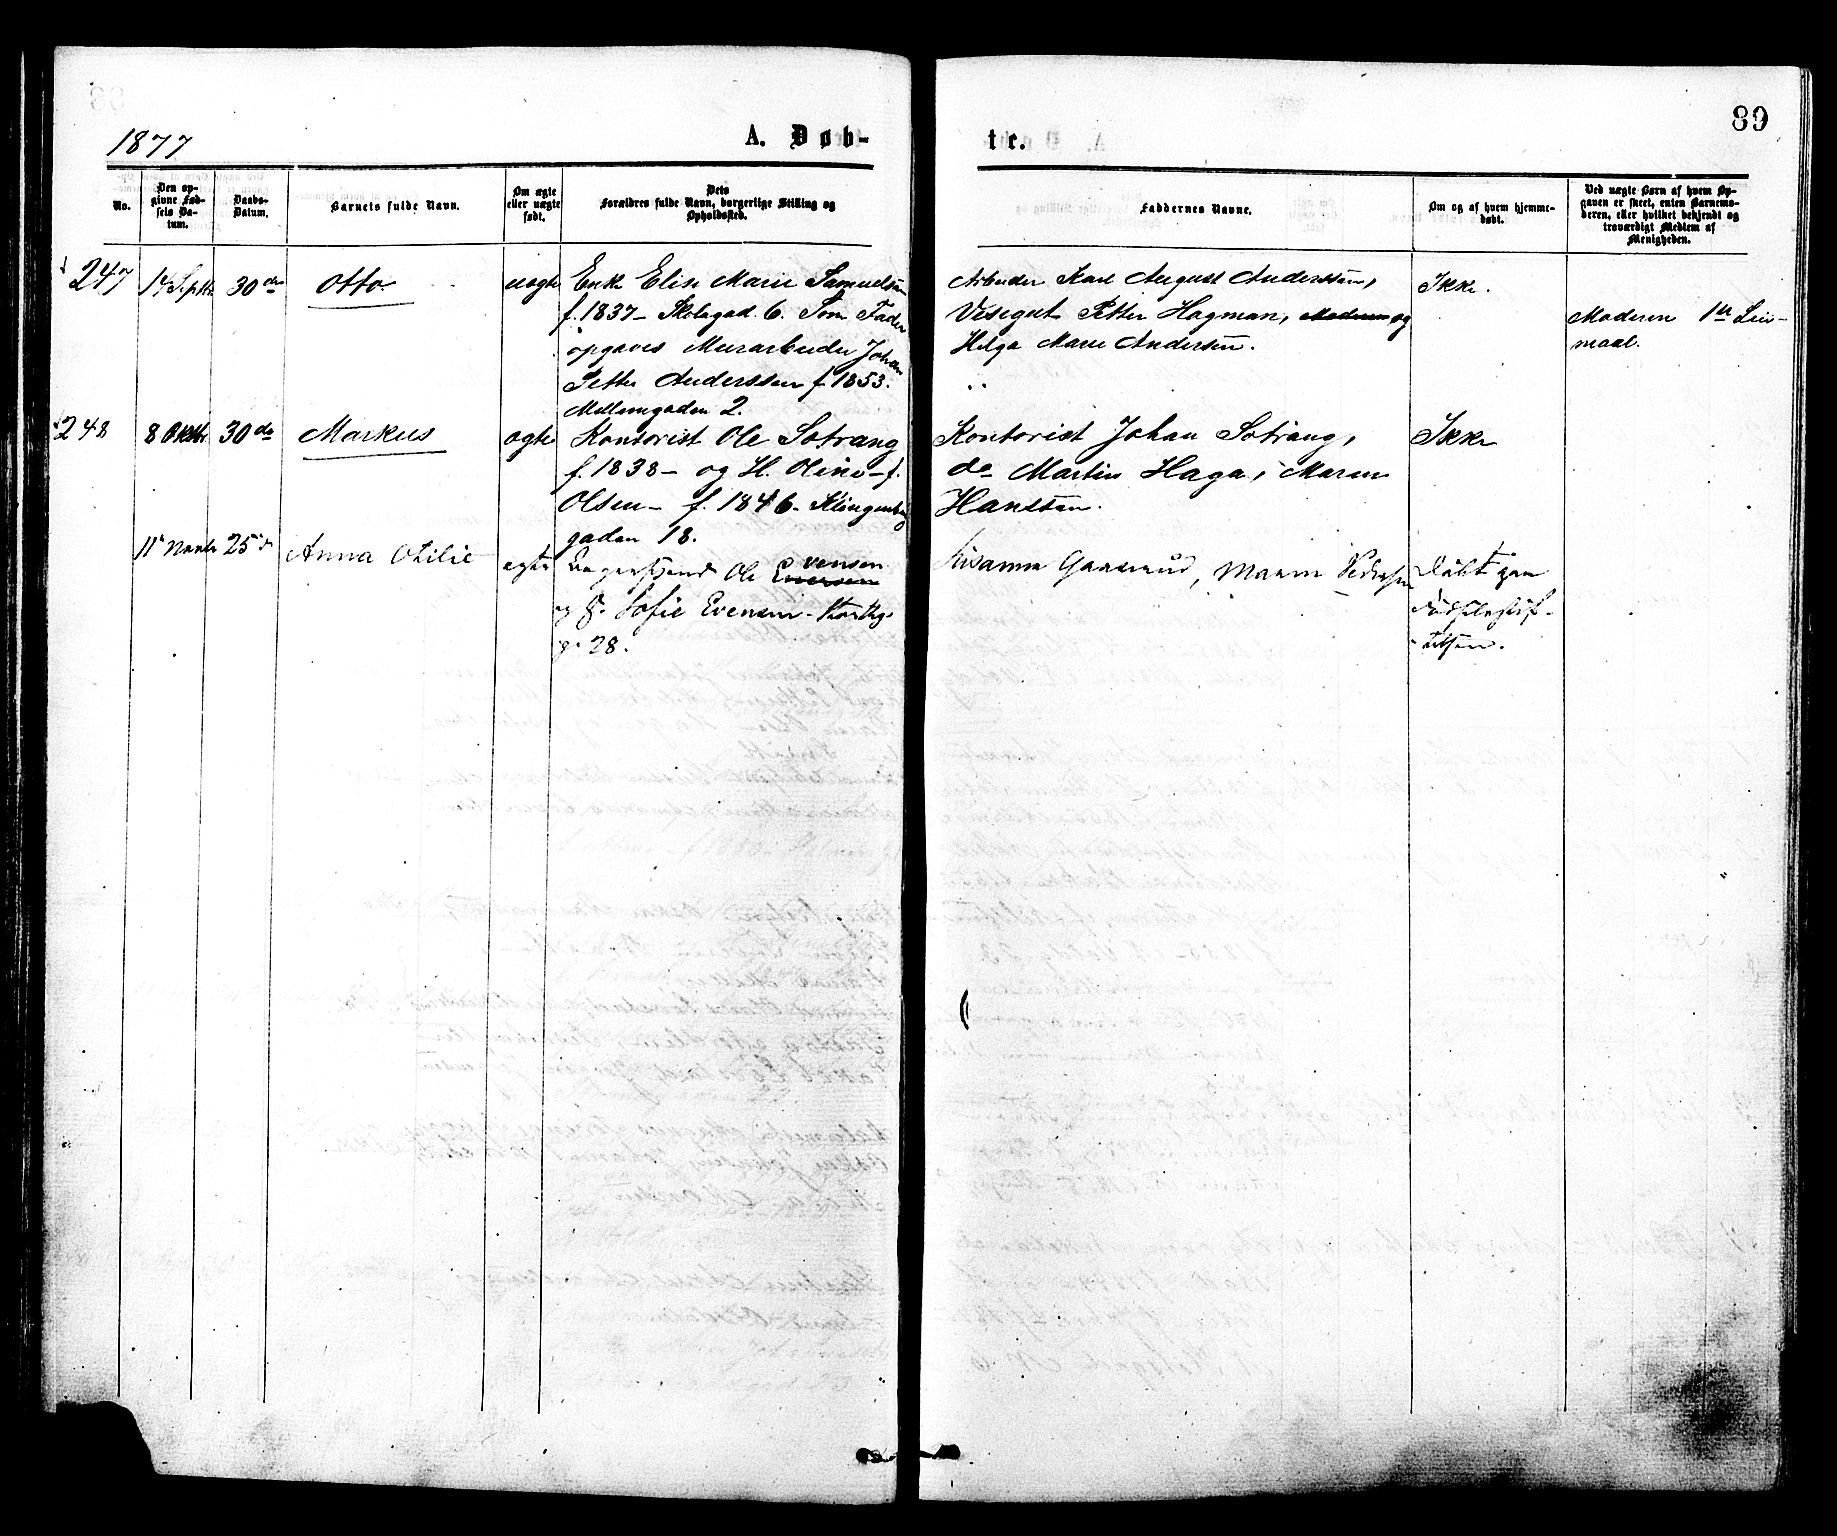 89
1877
A. Døb-
tr.
No.
Den op-
givne Fød-
sels Da-
tum.
Daabs-
Datum.
Barnets fulde Navn.
Om ægte
eller uægte
født.
Dets
Forældres fulde Navn, borgerlige Stilling og
Opholdssted.
Faddernes Navne.
Om og af hvem hjemme-
døbt.
Ved uægte Børn af hvem Op-
gaven er skeet, enten Barnemo-
deren, eller hvilket bekjendt og
troværdigt Medlem af
Menigheden.
247
14 Septbr
30de
Otto
uægte
Enke Elise Marie Samuelsen
f. 1837 - Skolegad. 6. Som Fader
opgaves Murarbeider Johan
Petter Anderssen f. 1853.
Mellemgaden 2.
Arbeider Karl August Anderssen,
Visegut Petter Hagman, Moderen og
Helga Marie Andersen.
Ikke.
Moderen 1ste Leier-
maal.
248
8 Oktbr
30de
Markus
ægte
Kontorist Ole Sotrang
f. 1838 - og H. Oline - f.
Olsen - f. 1846 - Klingenberg
gaden 18.
Kontorist Johan Sotrang,
do Martin Haga, Maren
Hanssen.
Ikke
11te Novbr
25de
Anna Otilie
ægte
Bagersvend Ole Evensen
og H. Sofie Evensen - Storthgs
g. 28.
Susanna Gaaserud, Maren Pedersen
Døbt paa
Fødselsstif-
telsen.